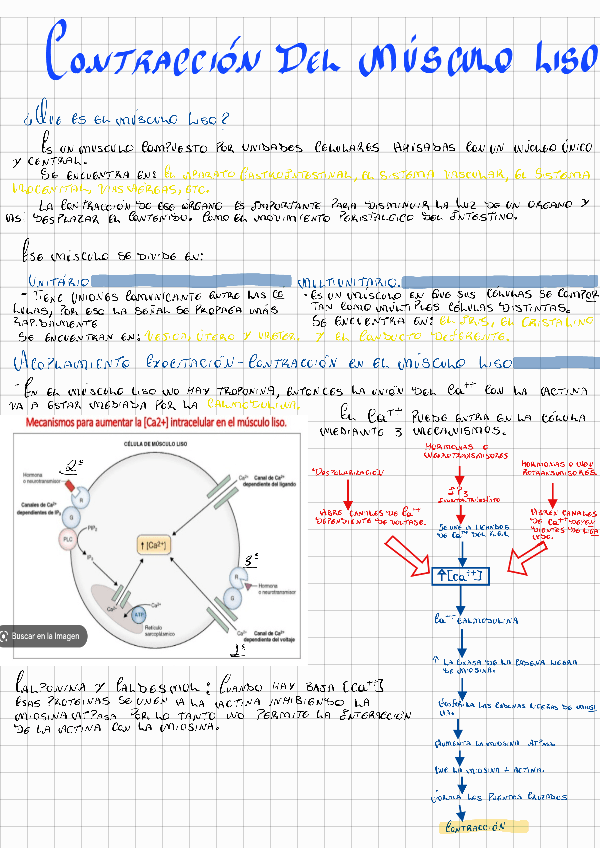 CONTRACCIÓN DEL MÚSCULO LISO
¿QUE ES EL MÚSCULO LISO?
ES UN MUSCULO COMPUESTO POR UNIDADES CELULARES AHUSADAS CON UN NÚCLEO ÚNICO
Y CENTRAL.
SE ENCUENTRA EN: EL APARATO GASTROINTESTINAL, EL SISTEMA VASCULAR, EL SISTEMA
UROGENITAL, VAS AEREAS, ETC.
LA CONTRACCIÓN DE ESE ORGANO ES IMPORTANTE PARA DISMINUIR LA LUZ DE UN ORGANO Y
AS DESPLAZAR EL CONTENIDO. COMO EL MOVIMIENTO PERISTALGICO DEL INTESTINO.
ESE MÚSCULO SE DIVIDE EN:
UNITÁRIO
- TIENE UNIONES COMUNICANTE ENTRE LAS CE
LULAS, POR ESO LA SEÑAL SE PROPAGA MÁS
RAPIDAMENTE
SE ENCUENTRAN EN: VESICA, ÚTERO Y URETER.
MULTIUNITARIO.
- ES UN MUSCULO EN QUE SUS CÉLULAS SE COMPOR
TAN COMO MULTIPLES CÉLULAS DISTINTAS.
SE ENCUENTRA EN: EL IRIS, EL CRISTALINO
Y EL CONDUCTO DEFERENTE.
ACOPLAMIENTO EXCITACIÓN-CONTRACCIÓN EN EL MÚSCULO LISO
- EN EL MÚSCULO LISO NO HAY TROPONINA, ENTONCES LA UNIÓN DEL Ca++ CON LA ACTINA
VA A ESTAR MEDIADA POR LA CALMODULINA
Mecanismos para aumentar la [Ca2+] intracelular en el músculo liso.
CÉLULA DE MÚSCULO LISO
2º
Hormona
o neurotransmisor
R
G
Canales de Ca²⁺
dependientes de IP₃
PLC
PIP₂
IP₃
Ca²⁺
Canal de Ca²⁺
dependiente del ligando
↑ [Ca²⁺]
3º
R
G
Hormona
o neurotransmisor
Ca²⁺
Ca²⁺
ATP
Retículo
sarcoplásmico
Ca²⁺
Canal de Ca²⁺
dependiente del voltaje
1º
Buscar en la Imagen
EL Ca++ PUEDE ENTRA EN LA CÉLULA
MEDIANTE 3 MECANISMOS.
DESPOLARIZACIÓN
ABRE CANALES DE Ca++
DEPENDIENTE DE VOLTAGE.
HORMONAS O
NEUROTRANSMISORES
IP3
SE UNE A LICANDOS
DE Ca++ DEL R.E.R
HORMONAS O NEU
ROTRANSMISORES.
ABREN CANALES
DE Ca++ DEPEN
DIENTES DE LIGA
NDO.
↑[Ca++]
Ca++ CALMODULINA
↑ LA CINASA DE LA CADENA LIGERA
DE MIOSINA.
FOSFORILA LAS CADENAS LIGERAS DE MIOSI
NA.
AUMENTA LA MIOSINA ATPasa
UNE LA MIOSINA + ACTINA.
FORMA LOS PUENTES CRUZADOS
CONTRACCIÓN
CALPONINA Y CALDESMOL: CUANDO HAY BAJA [Ca++]
ESAS PROTEINAS SE UNEN A LA ACTINA INHIBIENDO LA
MIOSINA ATPASA POR LO TANTO NO PERMITE LA INTERACCIÓN
DE LA ACTINA CON LA MIOSINA.